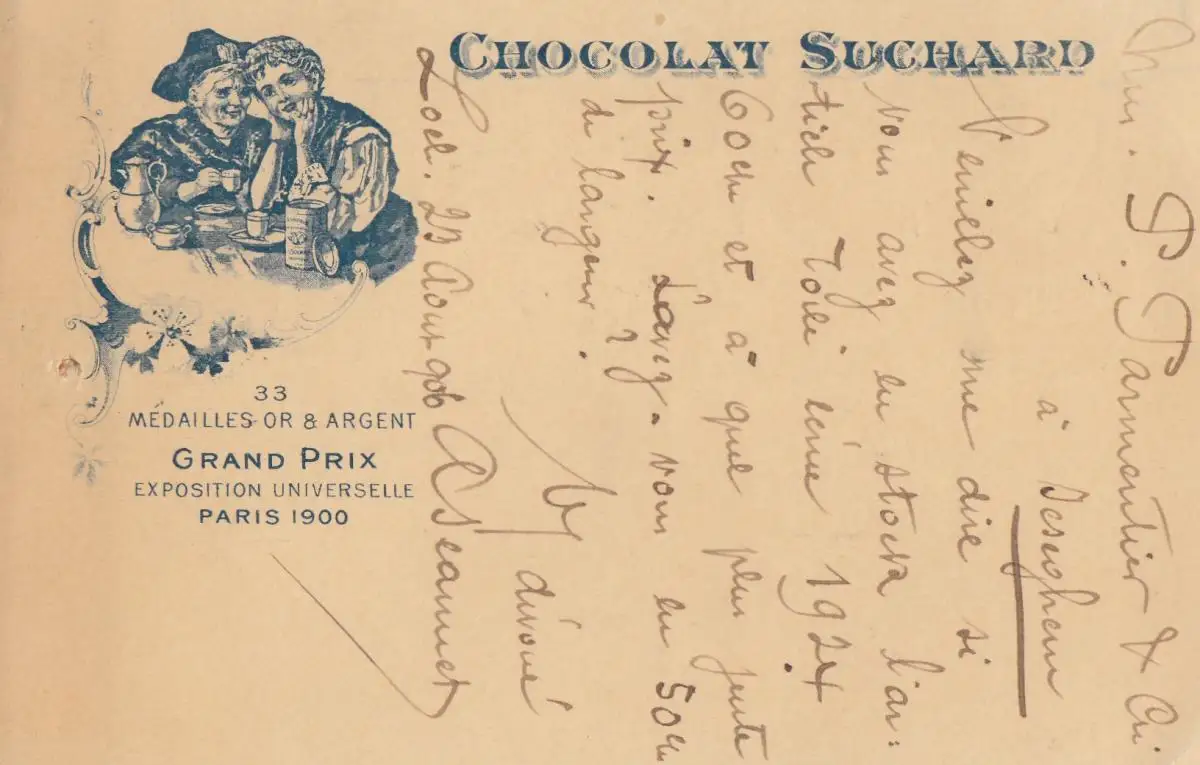 CHOCOLAT SUCHARD
33
MÉDAILLES OR & ARGENT
GRAND PRIX
EXPOSITION UNIVERSELLE
PARIS 1900
P. Parmentier & Cie
à Iseghem
Veuillez me dire si
vous avez en stock l'ar=
ticle Toile 1924
60cm et à quel plus juste
prix. L'avez-vous en 50cm
de largeur ?
dévoué
A Jeannet
Locl. 23 Aout 906